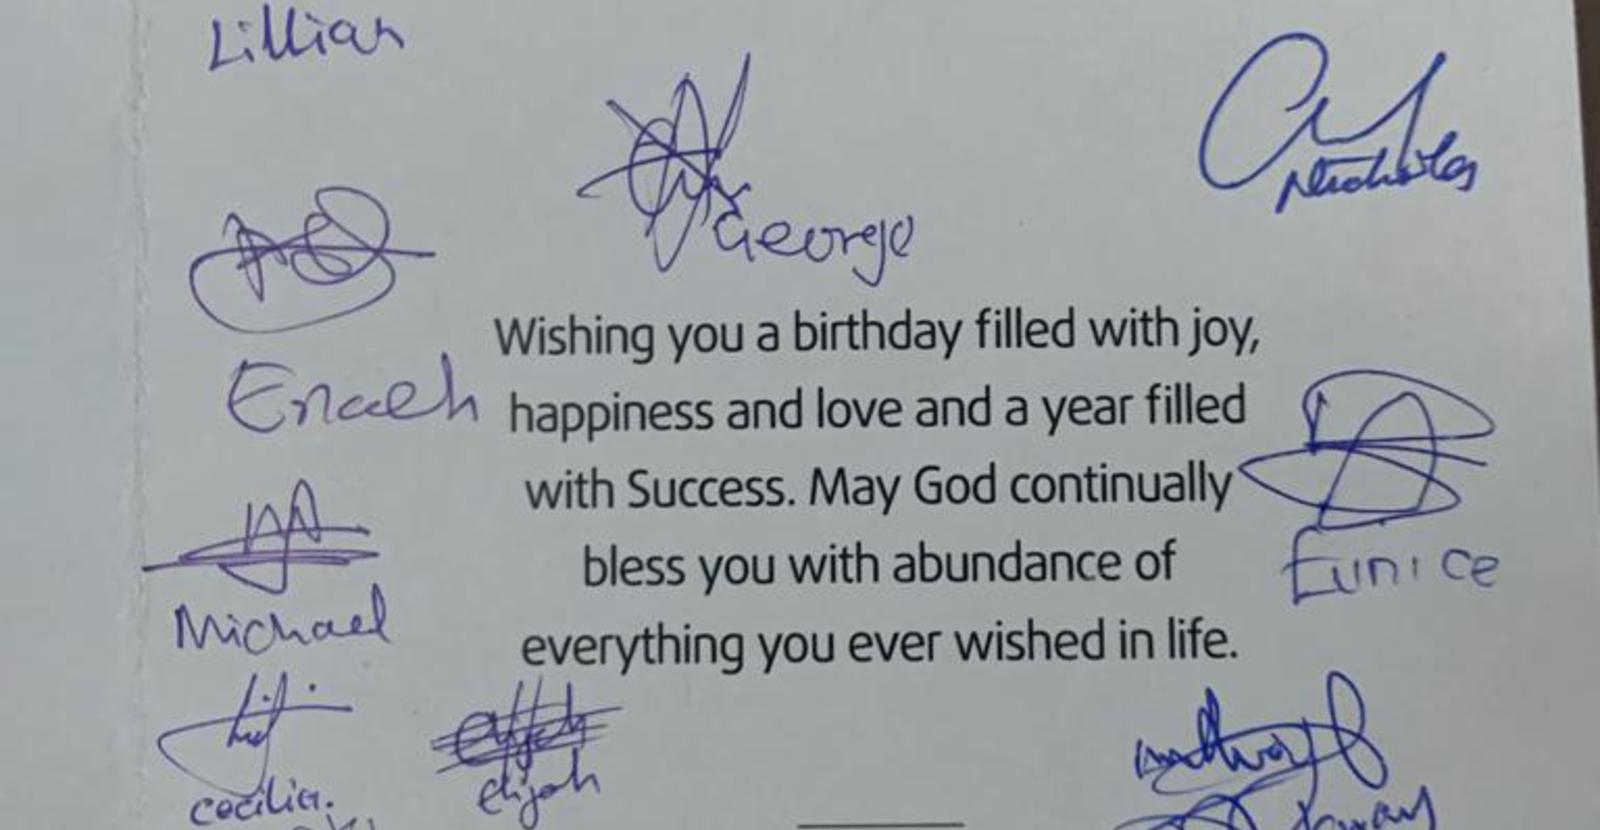 Lillian
George
Nicholas
Wishing you a birthday filled with joy,
Enoch
happiness and love and a year filled
with Success. May God continually
bless you with abundance of
Eunice
Michael
everything you ever wished in life.
Elijah
cecilia.